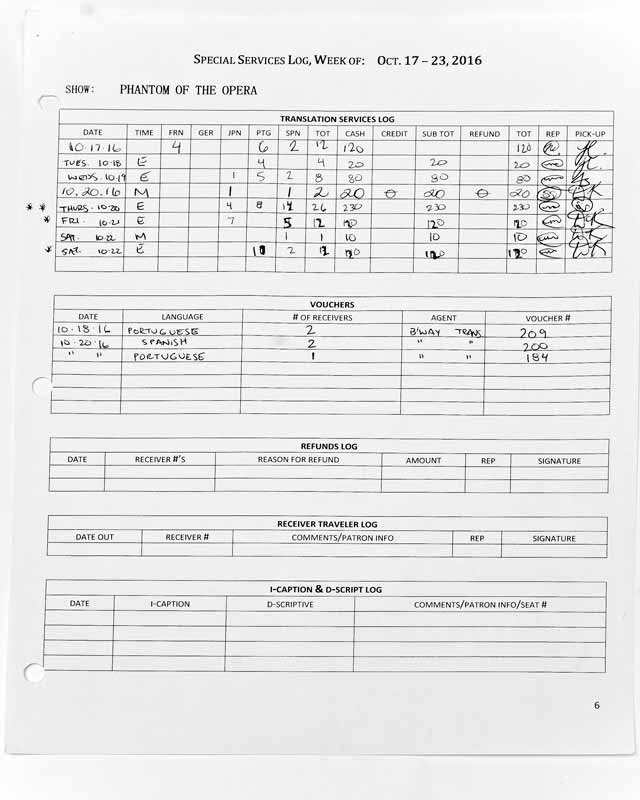 SPECIAL SERVICES LOG, WEEK OF: OCT. 17 – 23, 2016
SHOW: PHANTOM OF THE OPERA
TRANSLATION SERVICES LOG
DATE TIME FRN GER JPN PTG SPN TOT CASH CREDIT SUB TOT REFUND TOT REP PICK-UP
10.17.16 4 6 2 12 120 120
TUES. 10.18 E 4 4 20 20 20
WEDS. 10.19 E 1 5 2 8 80 80 80
10.20.16 M 1 1 2 20 0 20 0 20
* * THURS. 10.20 E 4 8 14 26 230 230 230
* FRI. 10.21 E 7 5 12 120 120 120
SAT. 10.22 M 1 1 10 10 10
* SAT. 10.22 E 10 2 12 120 120 120
VOUCHERS
DATE LANGUAGE # OF RECEIVERS AGENT VOUCHER #
10.18.16 PORTUGUESE 2 B'WAY TRANS. 209
10.20.16 SPANISH 2 " " 200
" " PORTUGUESE 1 " " 184
REFUNDS LOG
DATE RECEIVER #'S REASON FOR REFUND AMOUNT REP SIGNATURE
RECEIVER TRAVELER LOG
DATE OUT RECEIVER # COMMENTS/PATRON INFO REP SIGNATURE
I-CAPTION & D-SCRIPT LOG
DATE I-CAPTION D-SCRIPTIVE COMMENTS/PATRON INFO/SEAT #
6